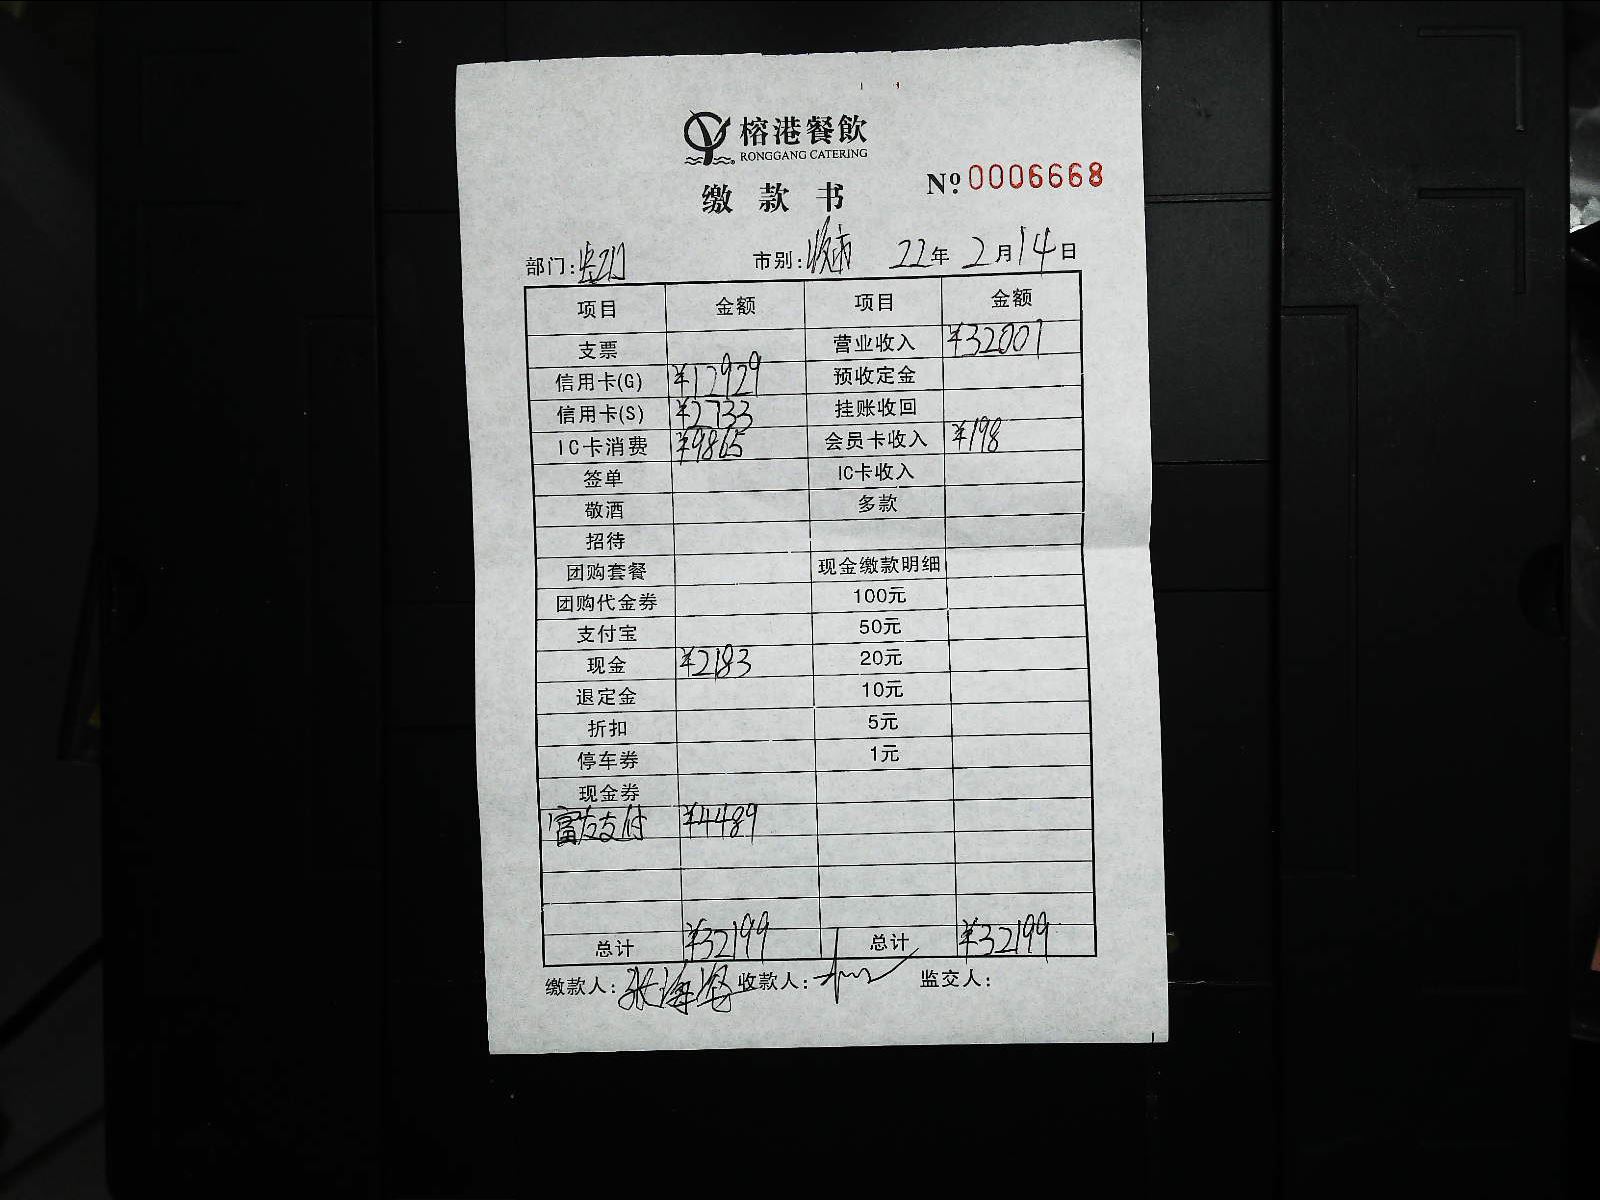 榕港餐飲
RONGGANG CATERING
缴款书
Nº.0006668
部门: 市别:收市 22年2月14日
项目 金额 项目 金额
支票 营业收入 ¥32001
信用卡(G) ¥12929 预收定金
信用卡(S) ¥2733 挂账收回
IC卡消费 ¥9865 会员卡收入 ¥198
签单 IC卡收入
敬酒 多款
招待
团购套餐 现金缴款明细
团购代金券 100元
支付宝 50元
现金 ¥2183 20元
退定金 10元
折扣 5元
停车券 1元
现金券
富友支付 ¥4489
总计 ¥32199 总计 ¥32199
缴款人:张海 收款人: 监交人: